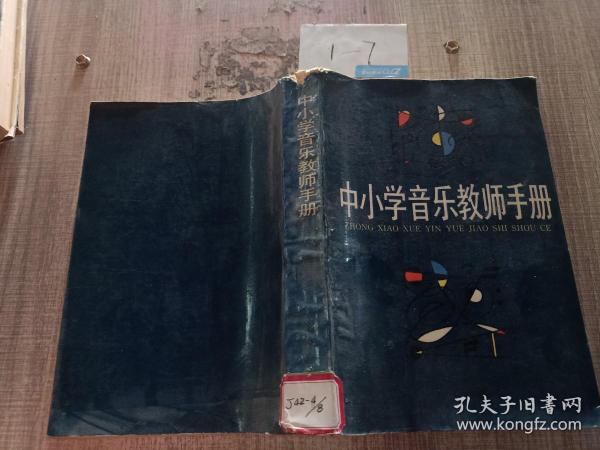 1-7
中小学音乐教师手册
中小学音乐教师手册
ZHONG XIAO XUE YIN YUE JIAO SHI SHOU CE
J42-4/8
孔夫子旧书网
kongfz.com